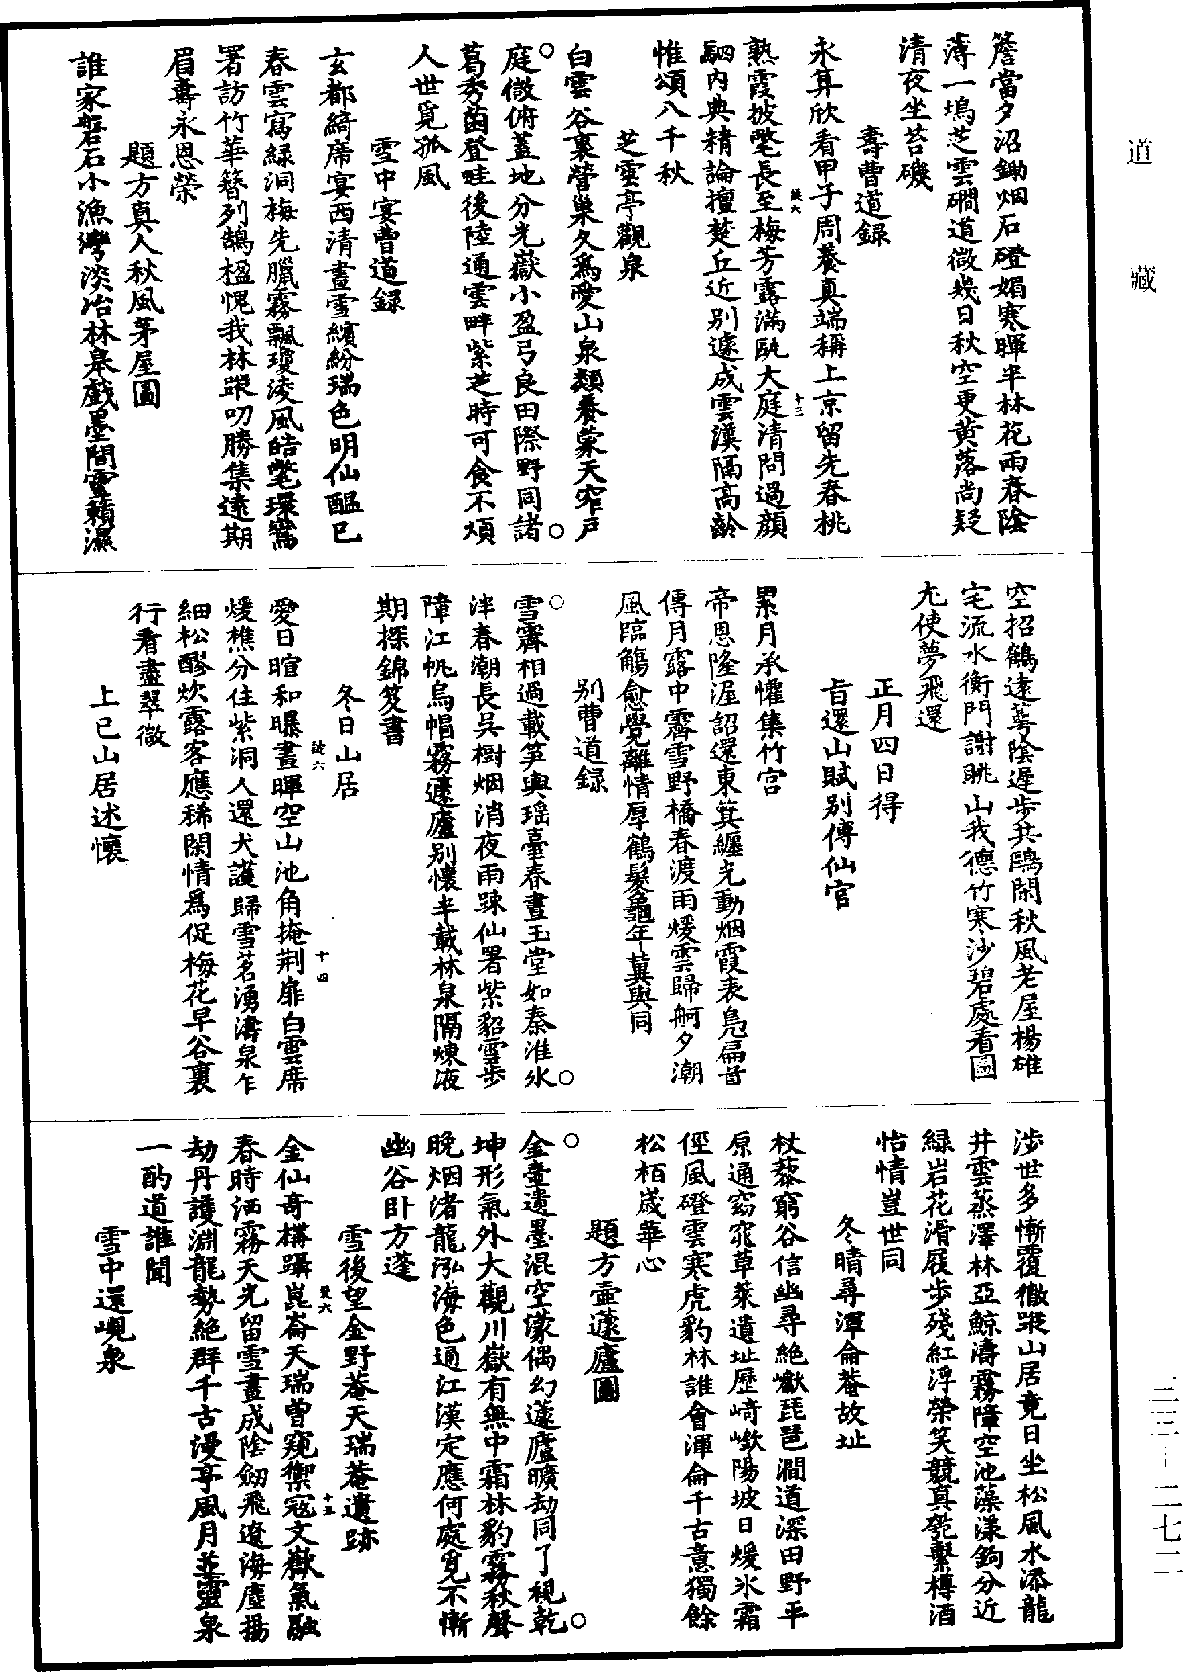 道藏
簷當夕沼鋤烟石磴媚寒暉半林花雨春陰
薄一塢芝雲磵道微幾日秋空更黄落尚疑
清夜坐苔磯
壽曹道録
永算欣看甲子周養真端稱上京留先春桃
熟霞披氅長至梅芳露滿甌大庭清問過顔
駟内典精論擅楚丘近别遽成雲漢隔高齡
惟頌八千秋
芝雲亭觀泉
白雲谷裏營巢久爲愛山泉類養蒙天窄戸
庭微俯蓋地分光嶽小盈弓良田際野同諸
葛秀菌登畦後陸通雲畔紫芝時可食不煩
人世覓孤風
雪中宴曹道録
玄都綺席宴西清晝雪繽紛瑞色明仙醖已
春雲寫緑洞梅先臘霧飄瓊凌風皓氅環鴛
署訪竹華簪列鵠楹愧我林踪叨勝集遠期
眉壽永恩榮
題方真人秋風茅屋圖
誰家磐石小漁灣淡冶林皋戲墨間靈籟濕
空招鶴遠蕚陰遲步共鷗閑秋風老屋楊雄
宅流水衡門謝眺山我德竹寒沙碧處看圖
尤使夢飛還
正月四日得
旨還山賦别傅仙官
累月承懽集竹宫
帝恩隆渥詔還東箕纏光動烟霞表鳧舄昔
傳月露中霽雪野橋春渡雨煖雲歸舸夕潮
風臨觴愈覺離情厚鶴髮龜年冀與同
别曹道録
雪霽相過載笋輿瑶臺春晝玉堂如秦淮氷
泮春潮長吳樹烟消夜雨踈仙署紫貂雲步
障江帆烏帽霧蘧廬别懷半載林泉隔煉液
期探錦笈書
冬日山居
愛日暄和曝晝暉空山池角掩荆扉白雲席
煖樵分住紫洞人還犬護歸雪茗湧濤泉乍
細松醪炊露客應稀閑情爲促梅花早谷裏
行看盡翠微
上巳山居述懷
涉世多慚覆轍蹤山居竟日坐松風水添龍
井雲蒸澤林亞鯨濤霧隆空池藻漾鉤分近
緑岩花滑屐步殘紅浮榮笑競真匏繫樽酒
怡情豈世同
冬晴尋潭侖菴故址
杖藜窮谷信幽尋絶巘琵琶澗道深田野平
原通窈窕草萊遺址歷崎嶔陽坡日煖氷霜
徑風磴雲寒虎豹林誰會渾侖千古意獨餘
松栢歲華心
題方壺蘧廬圖
金壷遺墨混空濛偶幻蘧廬曠劫同了視乾
坤形氣外大觀川嶽有無中霜林豹霧秋聲
晚烟渚龍泓海色通江漢定應何處覓不慚
幽谷卧方蓬
雪後望金野菴天瑞菴遺跡
金仙奇構躡崑崙天瑞曾窺禦寇文嶽氣融
春時洒霧天光留雪晝成陰劒飛遼海塵揚
劫丹護淵龍勢絶群千古漫亭風月並靈泉
一酌道誰聞
雪中還峴泉